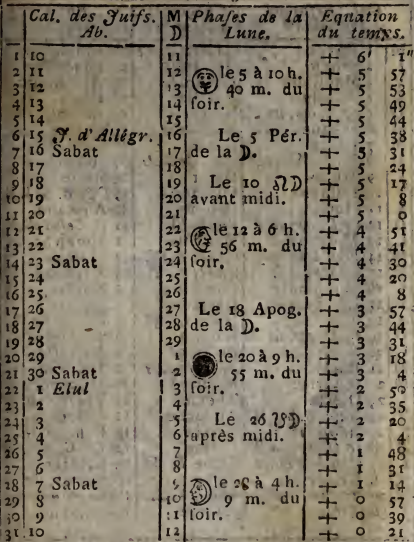 Cal. des Juifs. M Phases de la Equation
Ab. D Lune. du temps.
1 10 11 + 6' 1"
2 11 12 le 5 à 10 h. + 5 57
3 12 13 40 m. du + 5 53
4 13 14 soir. + 5 49
5 14 15 + 5 44
6 15 J. d'Allégr. 16 Le 5 Pér. + 5 38
7 16 Sabat 17 de la ☽. + 5 31
8 17 18 + 5 24
9 18 19 Le 10 ☊☽ + 5 17
10 19 20 avant midi. + 5 8
11 20 21 + 5 0
12 21 22 le 12 à 6 h. + 4 51
13 22 23 56 m. du + 4 41
14 23 Sabat 24 soir. + 4 30
15 24 25 + 4 20
16 25 26 + 4 8
17 26 27 Le 18 Apog. + 3 57
18 27 28 de la ☽. + 3 44
19 28 29 + 3 31
20 29 1 le 20 à 9 h. + 3 18
21 30 Sabat 2 55 m. du + 3 4
22 1 Elul 3 soir. + 2 50
23 2 4 + 2 35
24 3 5 Le 26 ☽ + 2 20
25 4 6 après midi. + 2 4
26 5 7 + 1 48
27 6 8 + 1 31
28 7 Sabat 9 le à 4 h. + 1 14
29 8 10 9 m. du + 0 57
30 9 11 soir. + 0 39
31 10 12 + 0 21